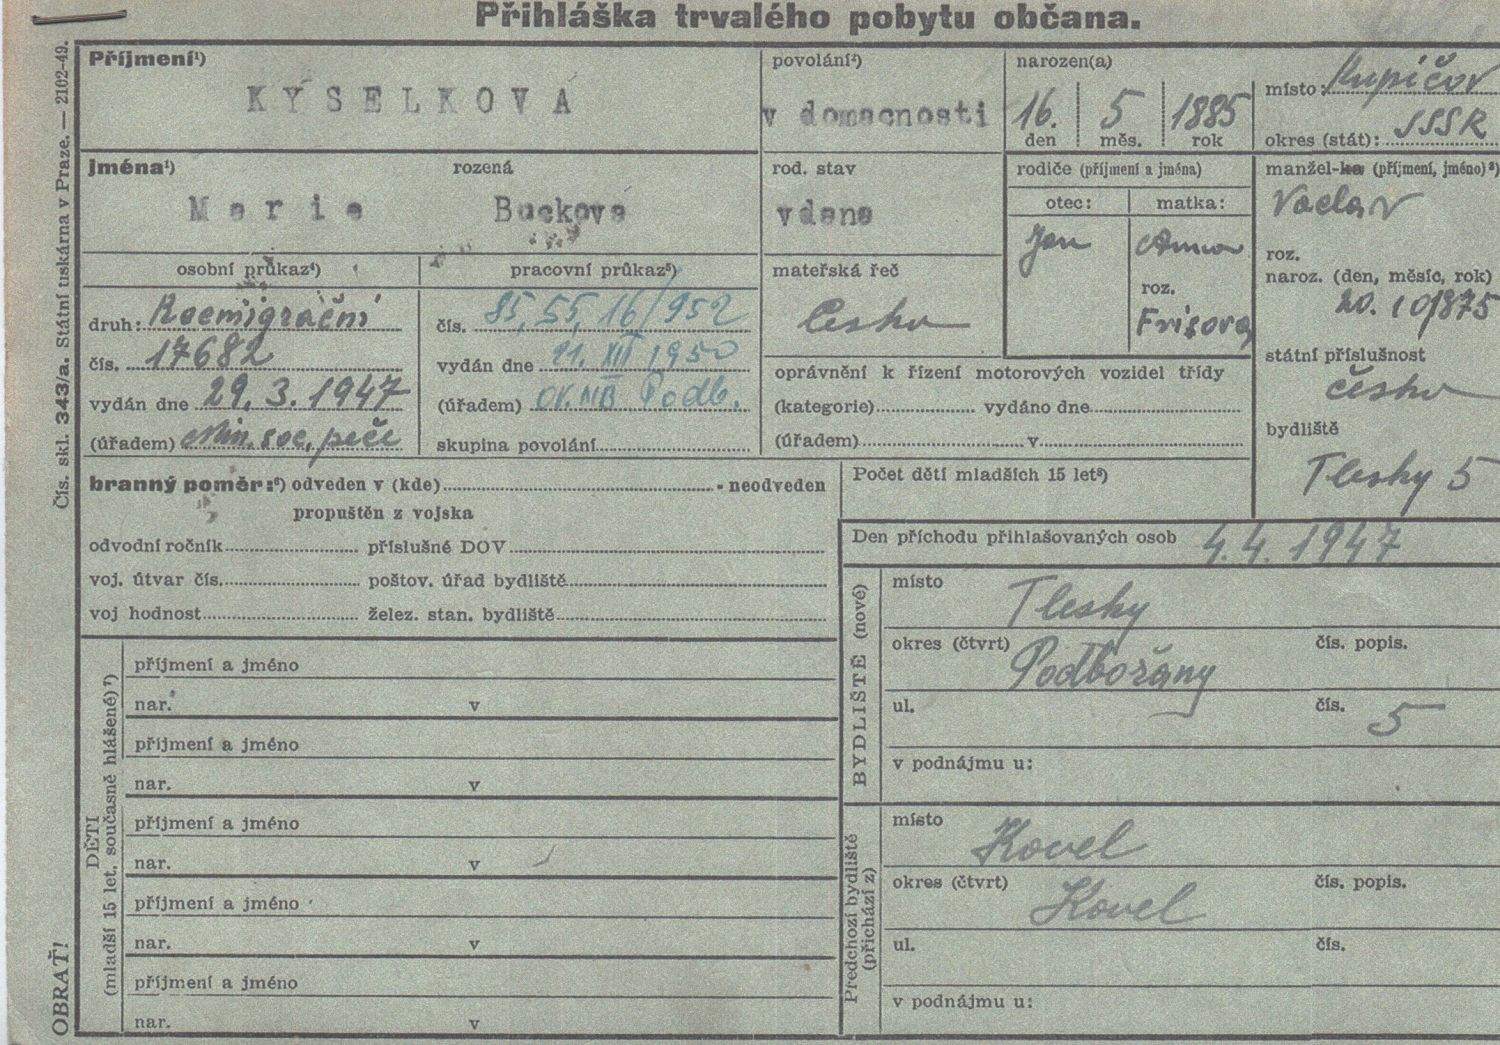 Přihláška trvalého pobytu občana.
Čís. skl. 343/a. Státní tuskárna v Praze. — 2102-49.
OBRAŤ!
Příjmení¹)
KÝSELKOVÁ
povolání²)
v domacnosti
narozen(a)
16. 5 1885
den měs. rok
místo: Kupičov
okres (stát): SSSR
jména¹) rozená
Marie Buckova
rod. stav
vdana
rodiče (příjmení a jména)
otec: matka:
Jan Anna
roz.
Frisova
manžel-ka (příjmení, jméno)³)
Vaclav
roz.
naroz. (den, měsíc, rok)
20. 10/875
státní příslušnost
česka
bydliště
Tlesky 5
osobní průkaz⁴) pracovní průkaz⁵)
druh: Reemigrační
čís. 17682
vydán dne 29. 3. 1947
(úřadem) Min. soc. peče
čís. 85, 55, 16/952
vydán dne 21. XII 1950
(úřadem) ONB Podb.
skupina povolání
mateřská řeč
česka
oprávnění k řízení motorových vozidel třídy
(kategorie) vydáno dne
(úřadem) v
branný poměr:⁶) odveden v (kde) - neodveden
propuštěn z vojska
odvodní ročník příslušné DOV
voj. útvar čís. poštov. úřad bydliště
voj hodnost želez. stan. bydliště
Počet dětí mladších 15 let⁸)
Den příchodu přihlašovaných osob 4. 4. 1947
DĚTI
(mladší 15 let, současně hlášené)⁷)
příjmení a jméno
nar. v
příjmení a jméno
nar. v
příjmení a jméno
nar. v
příjmení a jméno
nar. v
příjmení a jméno
nar. v
BYDLIŠTĚ (nové)
místo
Tlesky
okres (čtvrt) čís. popis.
Podbořany
ul. čís. 5
v podnájmu u:
Předchozí bydliště
(přichází z)
místo
Kovel
okres (čtvrt) čís. popis.
Kovel
ul. čís.
v podnájmu u: